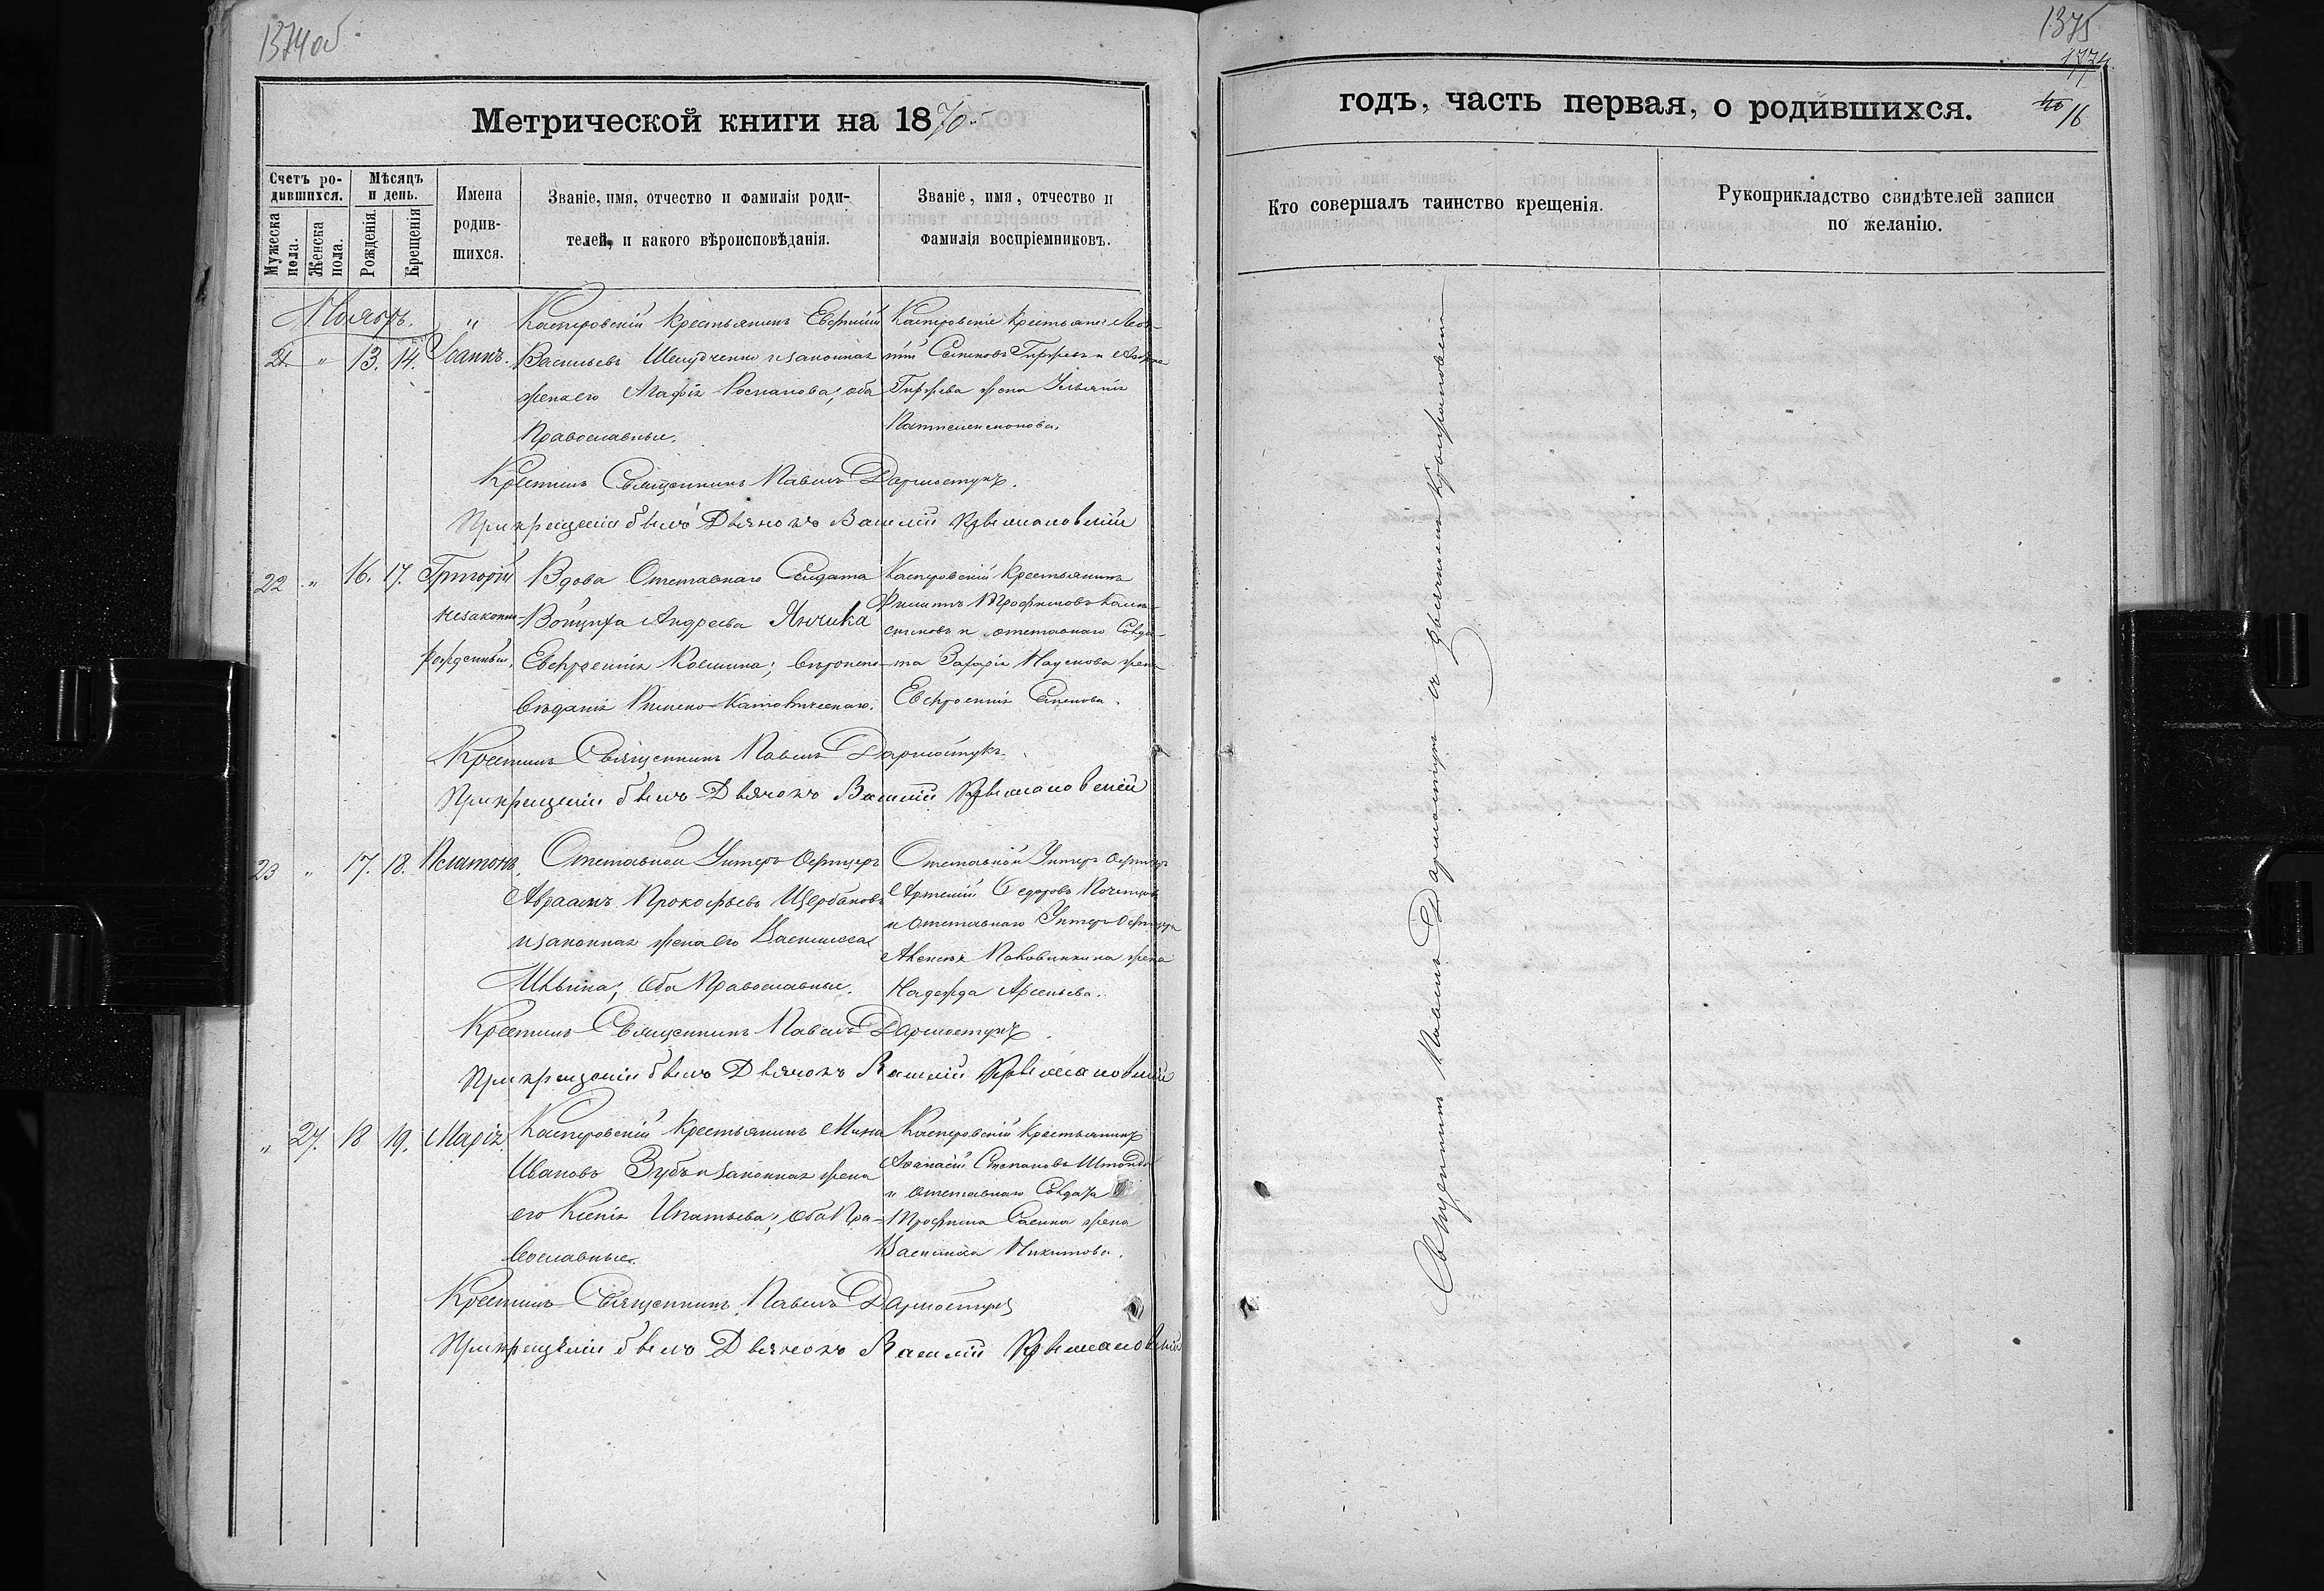 1374об
Метрической книги на 1870.
Счетъ ро-
дившихся.
Мужеска
пола.
Женска
пола.
Мѣсяцъ
и день.
Рожденія.
Крещенія
Имена
родив-
шихся.
Званіе, имя, отчество и фамилія роди-
телей, и какого вѣроисповѣданія.
Званіе, имя, отчество и
фамилія воспріемниковъ.
Ноябрь.
21. " 13. 14. Іоаннъ.
Касперовскій крестьянинъ Евфимій
Васильевъ и законная
жена его Агафія Романова; оба
Православные.
Касперовскіе крестьяне: Леон-
тій Семеновъ
жена
Пантелеимонова.
Крестилъ Священникъ Павелъ Дармостукъ.
При крещеніи былъ Дьячокъ Василій
22 " 16. 17. Григорій
незаконно-
рожденный.
Вдова Отставнаго Солдата
Войцеха Андреева Янчика
Евфросинія Космина; вѣроиспо-
вѣданія Римско-Католическаго.
Касперовскій крестьянинъ
Филиппъ Трофимовъ
и отставнаго Солда-
та Захарія Наумова жена
Евфросинія Семенова.
Крестилъ Священникъ Павелъ Дармостукъ.
При крещеніи былъ Дьячокъ Василій
23 " 17. 18. Платонъ.
Отставной Унтеръ Офицеръ
Авраамъ Прокофьевъ Щербаковъ
и законная жена его Василисса
Ильина; оба Православные.
Отставной Унтеръ Офицеръ
Артемій Федоровъ
и отставнаго Унтеръ Офицера
Алексѣя Половинкина жена
Надежда Арсеньева.
Крестилъ Священникъ Павелъ Дармостукъ.
При крещеніи былъ Дьячокъ Василій
" 27. 18 19. Марія
Касперовскій крестьянинъ Мина
Ивановъ Зубъ и законная жена
его Ксенія Игнатьева; оба Пра-
вославные.
Касперовскій крестьянинъ
Афанасій Степановъ
и отставнаго Солдата
Трофима жена
Василиса Никитова.
Крестилъ Священникъ Павелъ Дармостукъ
При крещеніи былъ Дьячокъ Василій
1375
16
годъ, часть первая, о родившихся.
Кто совершалъ таинство крещенія.
Рукоприкладство свидѣтелей записи
по желанію.
Священникъ Павелъ Дармостукъ съ дьячкомъ